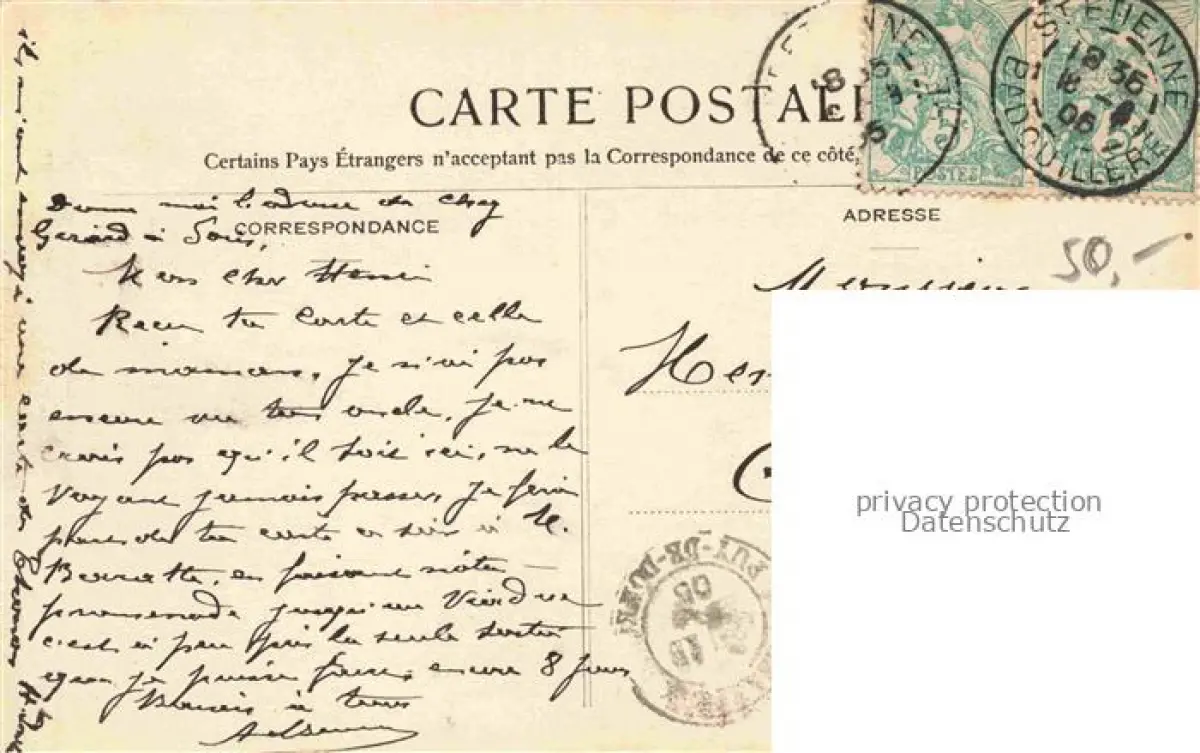 CARTE POSTALE
Certains Pays Étrangers n'acceptent pas la Correspondance de ce côté,
CORRESPONDANCE
ADRESSE
ST ETIENNE
18 35
16 -4
06
BADOUILLERE
POSTES
50,-
Donne moi l'adresse de chez
Gérard à
Mon cher
Reçu ta carte et celle
de maman. Je n'ai pas
encore vu ton oncle. Je ne
crois pas qu'il soit ici, ne le
voyant jamais passer. Je ferai
part de ta carte ce soir à M.
en faisant notre
promenade jusqu'au Viaduc
c'est à peu près la seule sortie
que je puisse faire encore 8 jours
Baisers à tous
ils m'ont envoyé une carte de
Monsieur
PUY-DE-DOME
privacy protection
Datenschutz